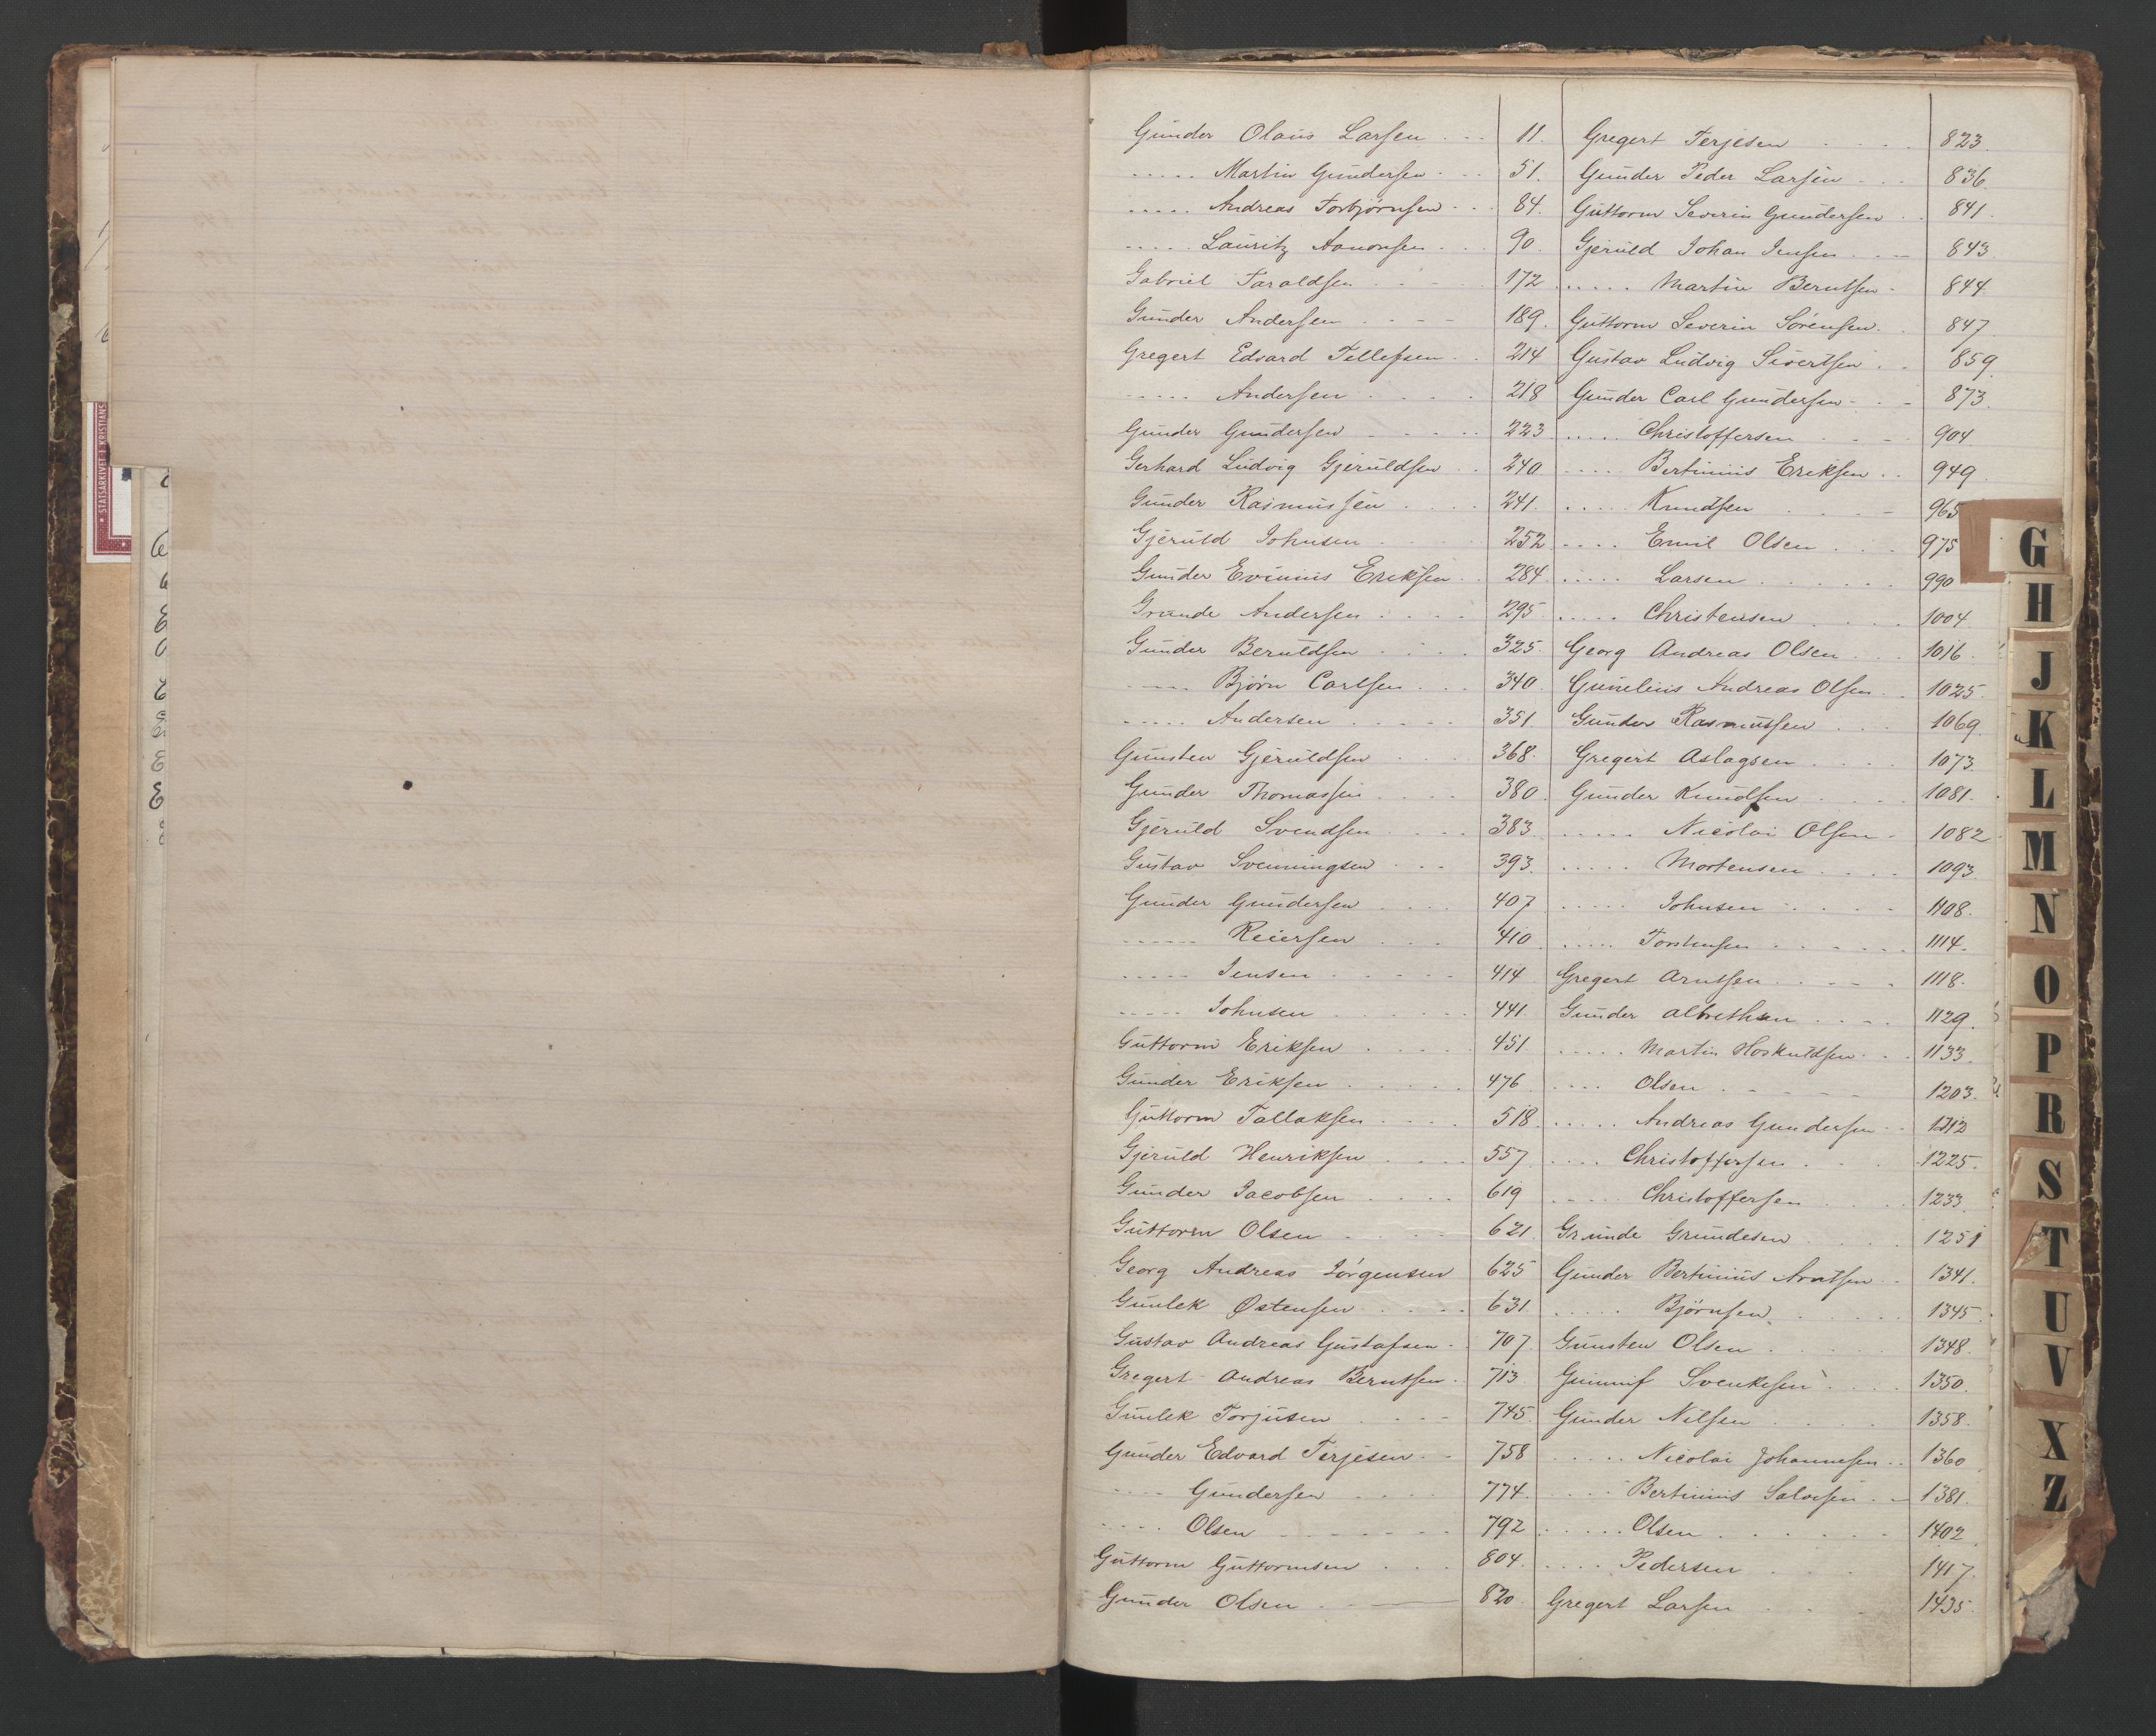 Gunder Olaus Larsen - - - 11.
- - - - - Martin Gundersen - - - 51.
- - - - - Andreas Torbjørnsen - - - 84.
- - - - - Lauritz Aanonsen - - - 90.
Gabriel Taraldsen - - - - 172
Gunder Andersen - - - - 189.
Gregert Edvard Tellefsen - - 214
- - - - - Andersen - - - - 218
Gunder Gundersen - - - - 223
Gerhard Ludvig Gjeruldsen - - 240
Gunder Rasmussen - - - - 241.
Gjeruld Johnsen - - - - 252
Gunder Evinius Eriksen - - 284
Grunde Andersen - - - - 295
Gunder Beruldsen - - - - 325.
- - - - Bjørn Carlsen - - - 340.
- - - - - Andersen - - - - - 351
Gunsten Gjeruldsen - - - 368.
Gunder Thomassen - - - - 380.
Gjeruld Svendsen - - - - 383
Gustav Svenningsen - - - 393.
Gunder Gundersen - - - - 407
- - - - - Reiersen - - - 410
- - - - - Jensen - - - - - 414
- - - - - Johnsen - - - - - - 441.
Guttorm Eriksen - - - - - 451.
Gunder Eriksen - - - - - 476
Guttorm Tallaksen - - - - 518.
Gjeruld Henriksen - - - - 557
Gunder Jacobsen - - - - 619
Guttorm Olsen - - - - - 621.
Georg Andreas Jørgensen 625
Gunlek Østensen - - - - - 631.
Gustav Andreas Gustafsen - - 707
Gregert Andreas Berntsen - 713
Gunlek Torjusen - - - - 745
Gunder Edvard Terjesen - - 758
- - - - Gundersen - - - - 774.
- - - - Olsen - - - - - - - 792
Guttorm Guttormsen - - - 804.
Gunder Olsen - - - 820.
Gregert Terjesen - - - - - 823.
Gunder Peder Larsen - - - 836.
Guttorm Severin Gundersen - - 841.
Gjeruld Johan Jensen - - - 843
- - - - - Martin Berntsen - 844.
Guttorm Severin Sørensen - - 847
Gustav Ludvig Sivertsen - - 859
Gunder Carl Gundersen - - - 873.
- - - - - Christoffersen - - - - 904
- - - - Bertinius Eriksen - - 949
- - - - - Knudsen - - - - 965
- - - - Emil Olsen - - - 975
- - - - - Larsen - - - - - - 990
- - - - - Christensen - - - - 1004
Georg Andreas Olsen - - - 1016.
Gunelius Andreas Olsen - - 1025.
Gunder Rasmussen - - - 1069.
Gregert Aslagsen - - - - 1073
Gunder Knudsen - - - - 1081.
- - - - - Nicolai Olsen - 1082
- - - - - Mortensen - - - - 1093.
- - - - - Johnsen - - - - 1108.
- - - - - Torstensen - - - - - 1114.
Gregert Arntsen - - - - - 1118.
Gunder Albrethsen - - - - 1129.
- - - - - Martin Hoskuldsen - - - 1133.
- - - - Olsen - - - - - 1203.
- - - - - Andreas Gundersen - - 1212
- - - - Christoffersen - - - 1225.
- - - - - Christoffersen - - - - 1233.
Grunde Grundesen - - - - 1251
Gunder Bertinius Arntsen - 1341.
- - - - - Bjørnsen - - - - 1345.
Gunsten Olsen - - - - 1348.
Gunnuf Svenkesen - - - - 1350.
Gunder Nilsen - - - - 1358.
- - - - - Nicolai Johannesen - - 1360
- - - - Bertinius Salvesen - - - 1381.
- - - - - Olsen - - - - - - 1402.
- - - - Pedersen - - - - 1417.
Gregert Larsen - - - 1435.
G
H
J
K
L
M
N
O
P
R
S
T
U
V
X
Z
STATSARKIVET I KRISTIANS